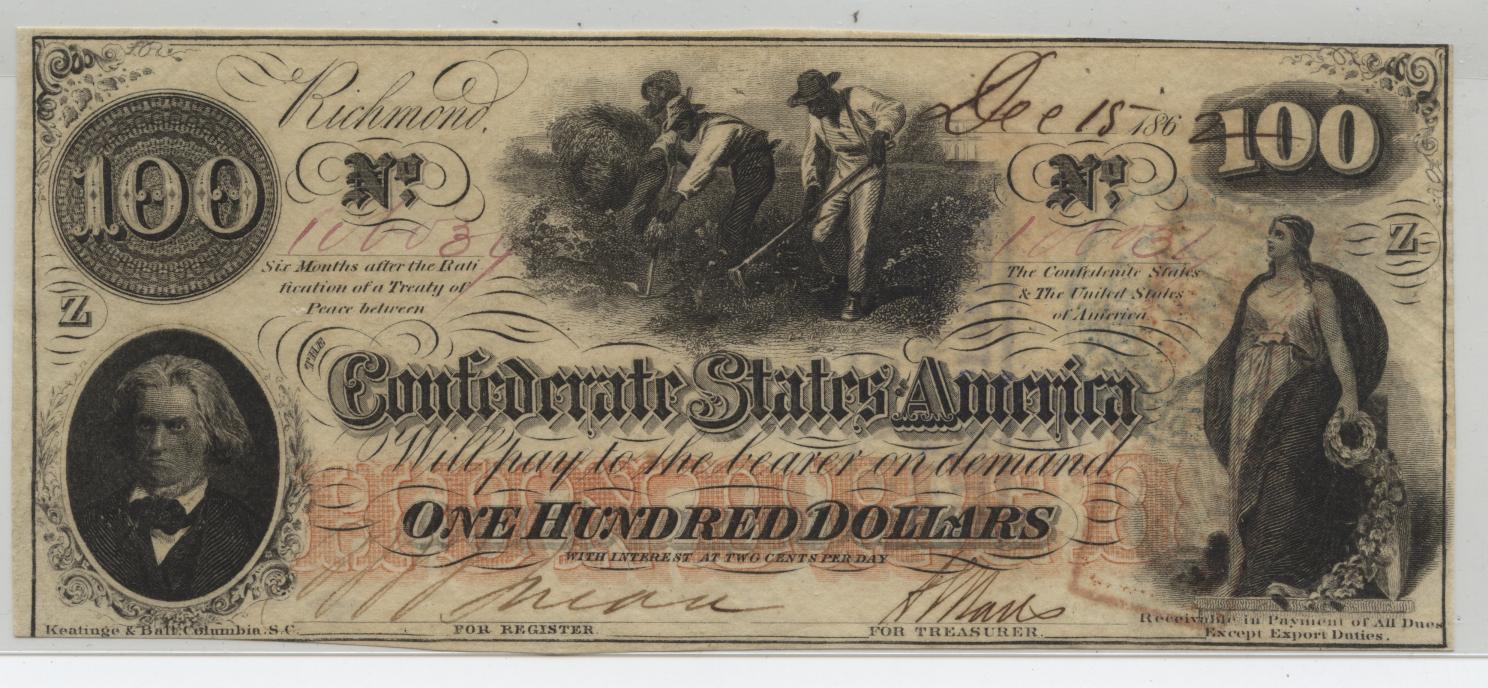 Richmond,
Dec 15 1862
100
100
No.
No.
Six Months after the Rati
fication of a Treaty of
Peace between
The Confederate States
& The United States
of America
Z
Z
THE
Confederate States America
Will pay to the bearer on demand
HUNDRED
ONE HUNDRED DOLLARS
WITH INTEREST AT TWO CENTS PER DAY
Keatinge & Ball, Columbia. S.C.
FOR REGISTER.
FOR TREASURER.
Receivable in Payment of All Dues
Except Export Duties.